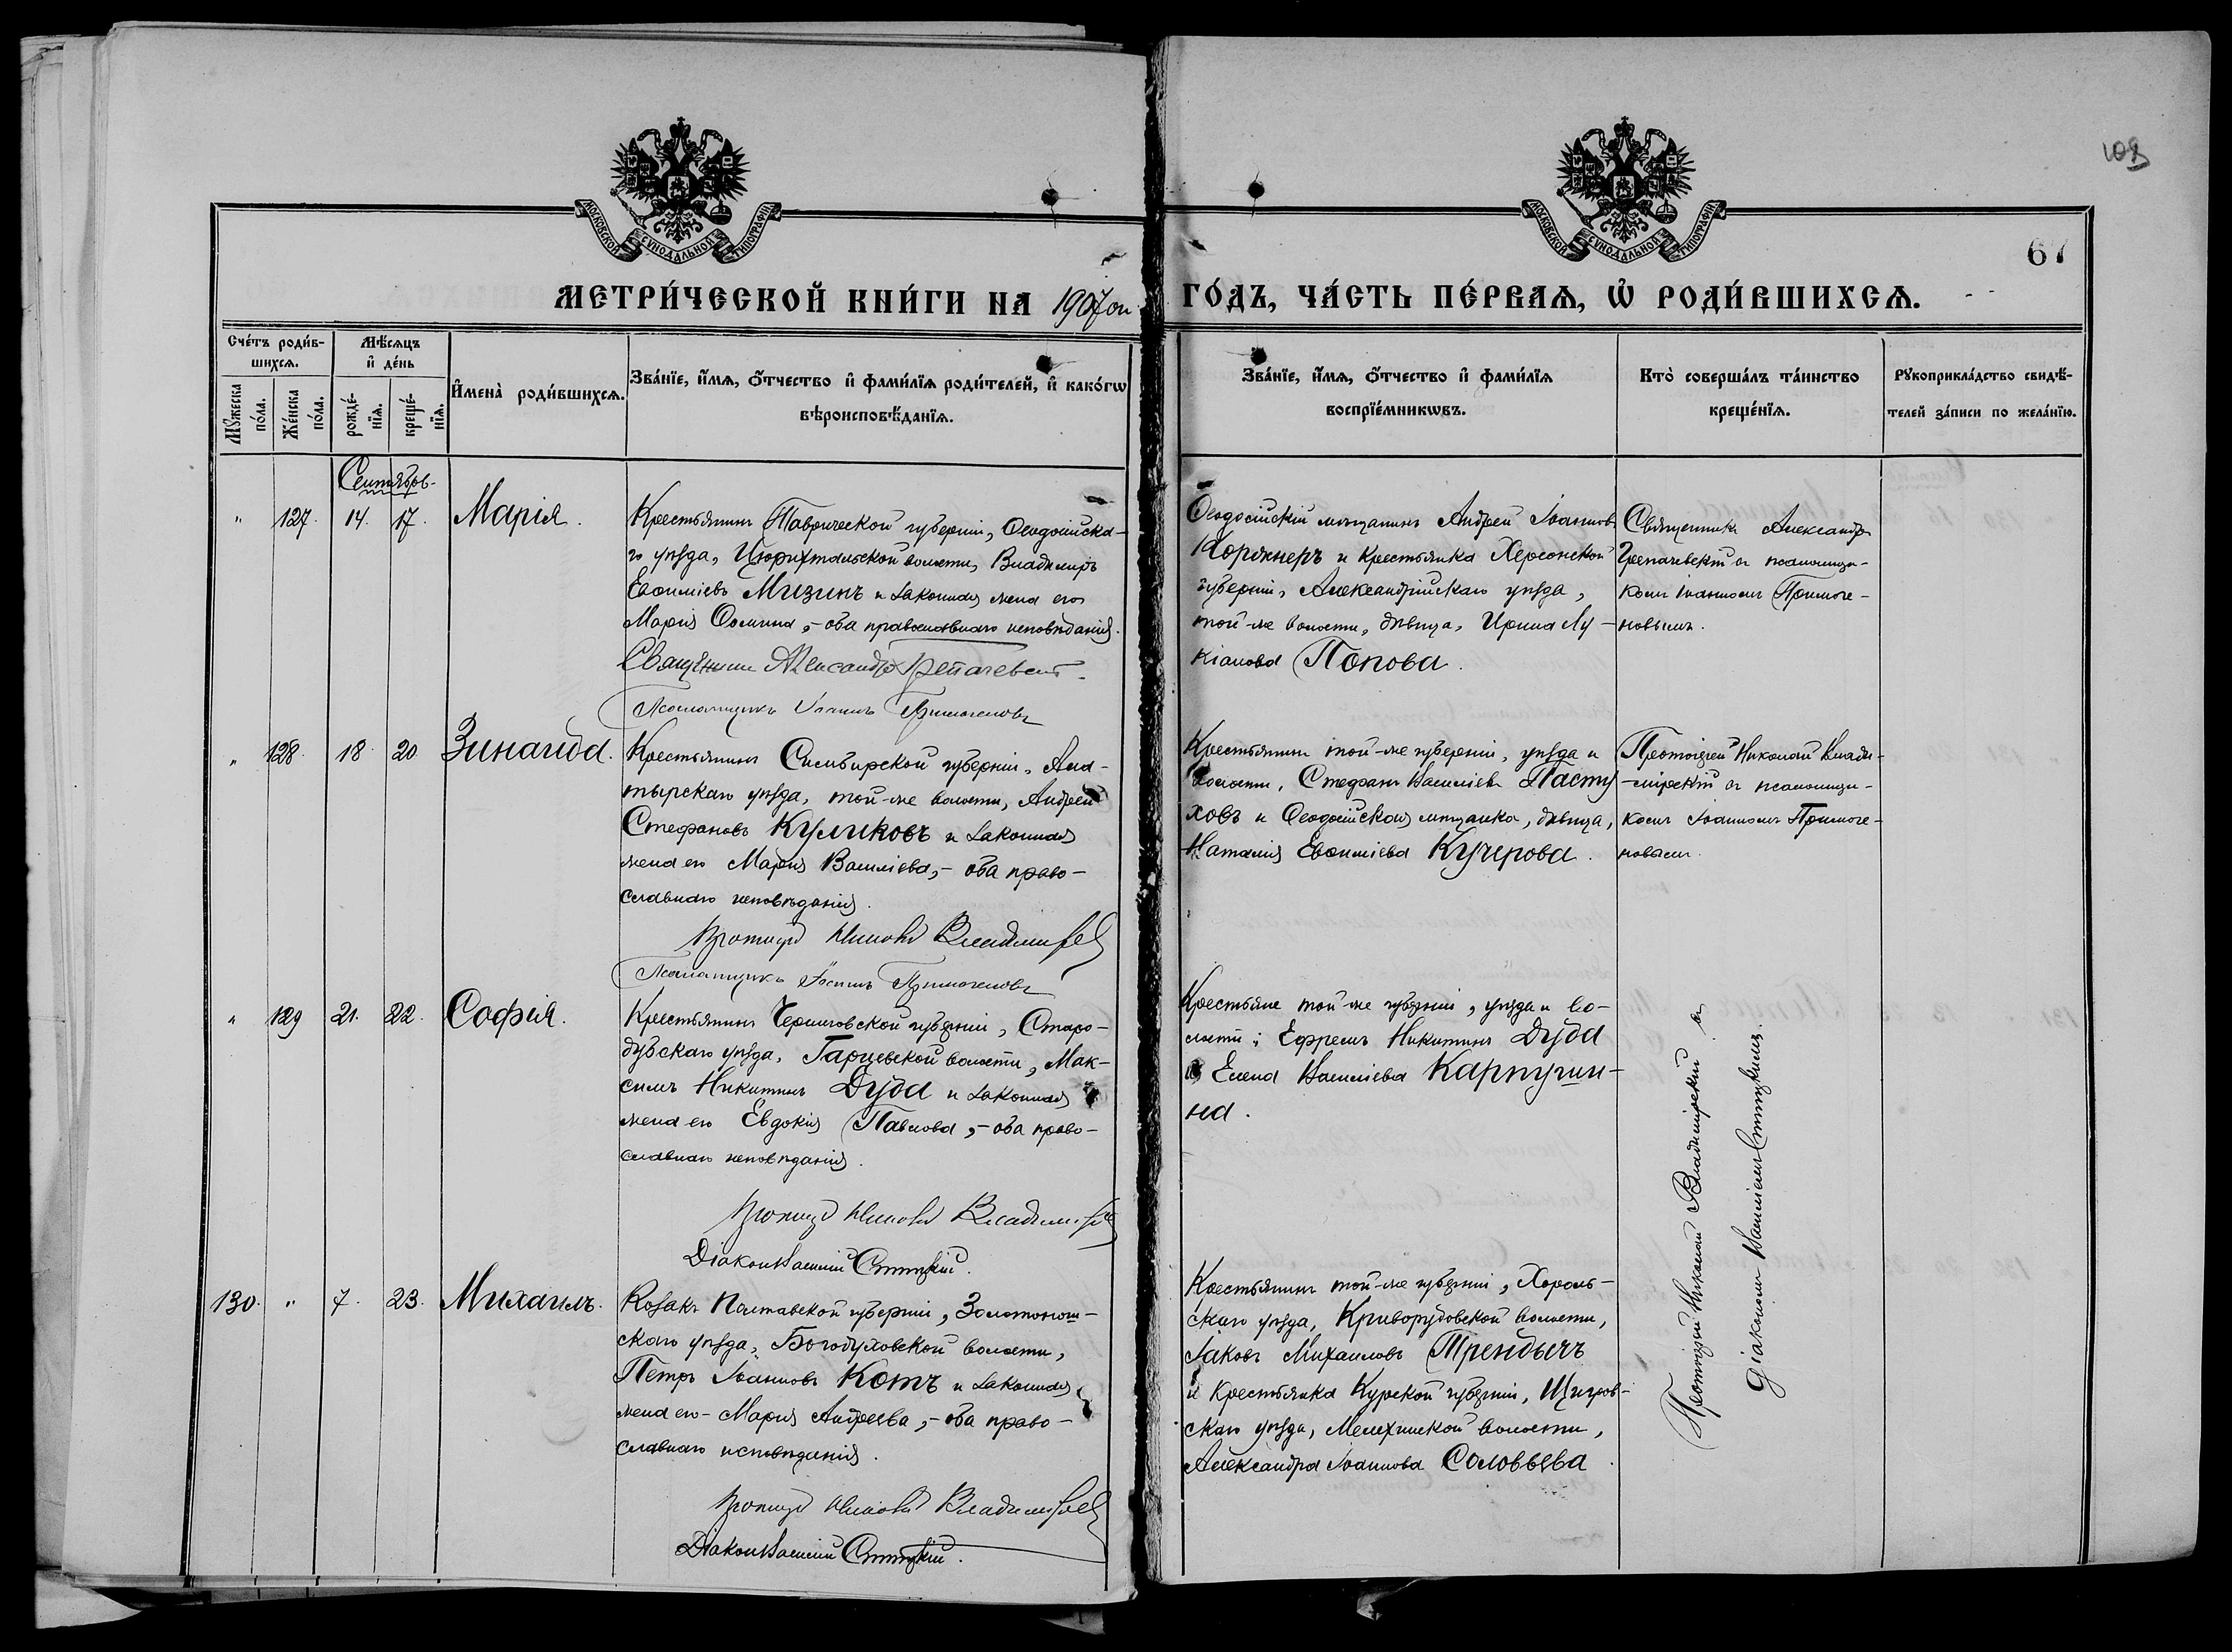 109
67
МОСКОВСКОЙ СѴНОДАЛЬНОЙ ТИПОГРАФІИ
МОСКОВСКОЙ СѴНОДАЛЬНОЙ ТИПОГРАФІИ
МЕТРИ́ЧЕСКОЙ КНИ́ГИ НА 1907 ой
ГО́ДЪ, ЧА́СТЬ ПЕ́РВАѦ, Ѡ҆ РОДИ́ВШИХСѦ.
Сче́тъ роди́в-
шихсѧ.
Мꙋжеска по́ла.
Же́нска по́ла.
Мѣ́сѧцъ
и҆ де́нь
рожде́-
нїѧ.
креще́-
нїѧ.
И҆мена̀ роди́вшихсѧ.
Зва́нїе, и҆́мѧ, ѻ҆́тчество и҆ фами́лїѧ роди́телей, и҆ како́гѡ
вѣроисповѣ́данїѧ.
Зва́нїе, и҆́мѧ, ѻ҆́тчество и҆ фами́лїѧ
воспрїе́мникѡвъ.
Кто̀ соверша́лъ та́инство
креще́нїѧ.
Рꙋкоприкла́дство свидѣ́-
телей за́писи по жела́нїю.
Сентябрь
" 127. 14. 17. Марія.
Крестьянинъ Таврической губерніи, Ѳеодосійска-
го уѣзда, Цюрихтальской волости, Владиміръ
Евѳиміевъ Мизинъ и законная жена его
Марія Ѳомина, - оба православнаго исповѣданія.
Священникъ Александръ Грепачевскій
Псаломщикъ Іоаннъ Примоченовъ
Ѳеодосійскій мѣщанинъ Андрей Іоанновъ
Коржнеръ и крестьянка Херсонской
губерніи, Александрійскаго уѣзда,
той-же волости, дѣвица, Ирина Лу-
кіанова Попова.
Священникъ Александръ
Грепачевскій съ псаломщи-
комъ Іоанномъ Примоче-
новымъ.
" 128. 18. 20. Зинаида.
Крестьянинъ Симбирской губерніи, Ала-
тырскаго уѣзда, той-же волости, Андрей
Стефановъ Куликовъ и законная
жена его Марія Василіева, - оба право-
славнаго исповѣданія.
Протоіерей Николай Владимірскій
Псаломщикъ Іоаннъ Примоченовъ
Крестьянинъ той-же губерніи, уѣзда и
волости, Стефанъ Василіевъ Пасту-
ховъ и Ѳеодосійская мѣщанка, дѣвица,
Наталія Евѳиміева Кучерова.
Протоіерей Николай Влади-
-мірскій съ псаломщи-
комъ Іоанномъ Примоче-
новымъ.
" 129 21. 22. Софія.
Крестьянинъ Черниговской губерніи, Старо-
дубскаго уѣзда, Гарцевской волости, Мак-
симъ Никитинъ Дуда и законная
жена его Евдокія Павлова, - оба право-
славнаго исповѣданія.
Протоіерей Николай Владимірскій
Діаконъ Василій Ститукій.
Крестьяне той-же губерніи, уѣзда и во-
лости: Ефремъ Никитинъ Дуда
и Елена Василіева Карпучин-
на.
130. " 7. 23. Михаилъ.
Козакъ Полтавской губерніи, Золотонош-
скаго уѣзда, Богодуховской волости,
Петръ Іоанновъ Котъ и законная
жена его - Марія Андреева, - оба право-
славнаго исповѣданія.
Протоіерей Николай Владимірскій
Діаконъ Василій Ститукій.
Крестьянинъ той-же губерніи, Хороль-
скаго уѣзда, Криворудовской волости,
Іаковъ Михаиловъ Трендычъ
и крестьянка Курской губерніи, Щигров-
скаго уѣзда, Мелехинской волости,
Александра Іоаннова Соловьева.
Протоіерей Николай Владимірскій съ
діакономъ Василіемъ Ститукимъ.